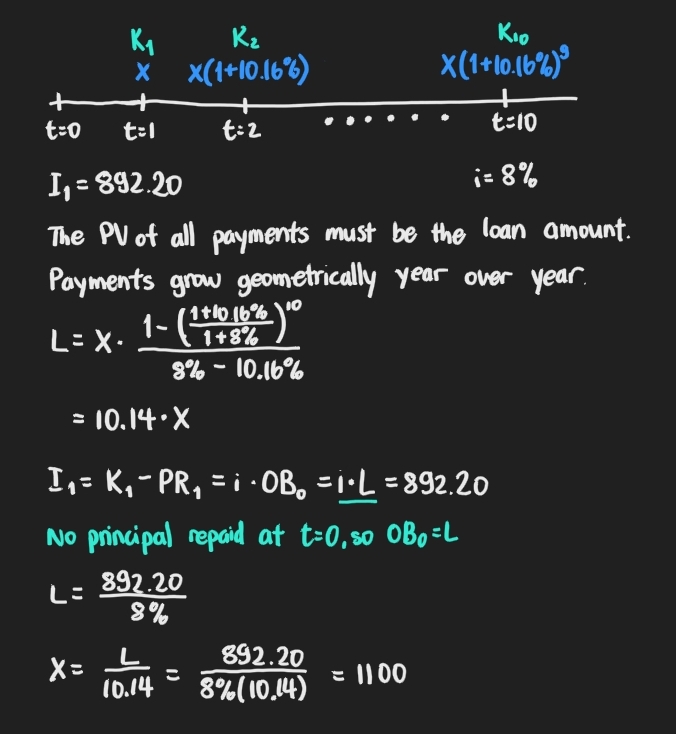 K₁ K₂ K₁₀
X X(1+10.16%) X(1+10.16%)⁹
t=0 t=1 t=2 ...... t=10
I₁ = 892.20 i= 8%
The PV of all payments must be the loan amount.
Payments grow geometrically year over year.
L= X · (1-((1+10.16%)/(1+8%))¹⁰)/(8% - 10.16%)
= 10.14 · X
I₁ = K₁ - PR₁ = i · OB₀ = i·L = 892.20
No principal repaid at t=0, so OB₀=L
L= 892.20/8%
X= L/10.14 = 892.20/8%(10.14) = 1100